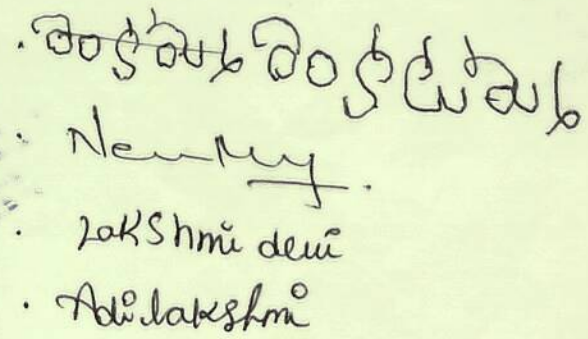 వెంకమ్మ వెంకటమ్మ
Lakshmi devi
Adilakshmi